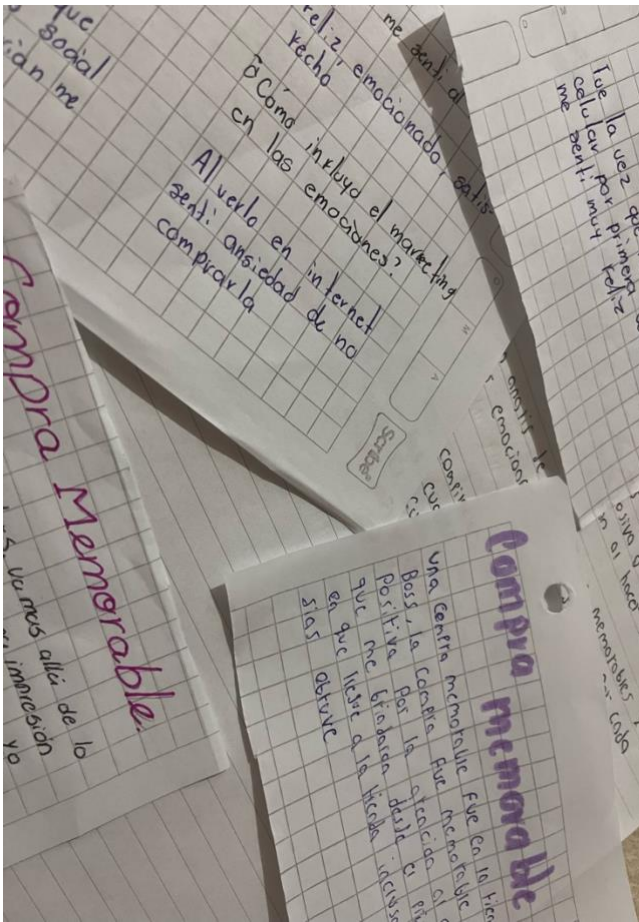 que
social
rían me
me sentí al
feliz, emocionado, satis-
fecho
¿Cómo influyó el marketing
en las emociones?
Al verlo en internet
sentí ansiedad de no
comprarla
Scribe
Fue la vez que
celular por primera
me sentí muy feliz
Compra Memorable.
vamos allá de lo
impresión
yo
Compra memorable
una compra memorable fue en la
Boss, la compra fue memorable
positiva por la atención al
que me brindaron desde el
en que llegue a la tienda incluso
sias obtuve
memorables,
cada
al hacer